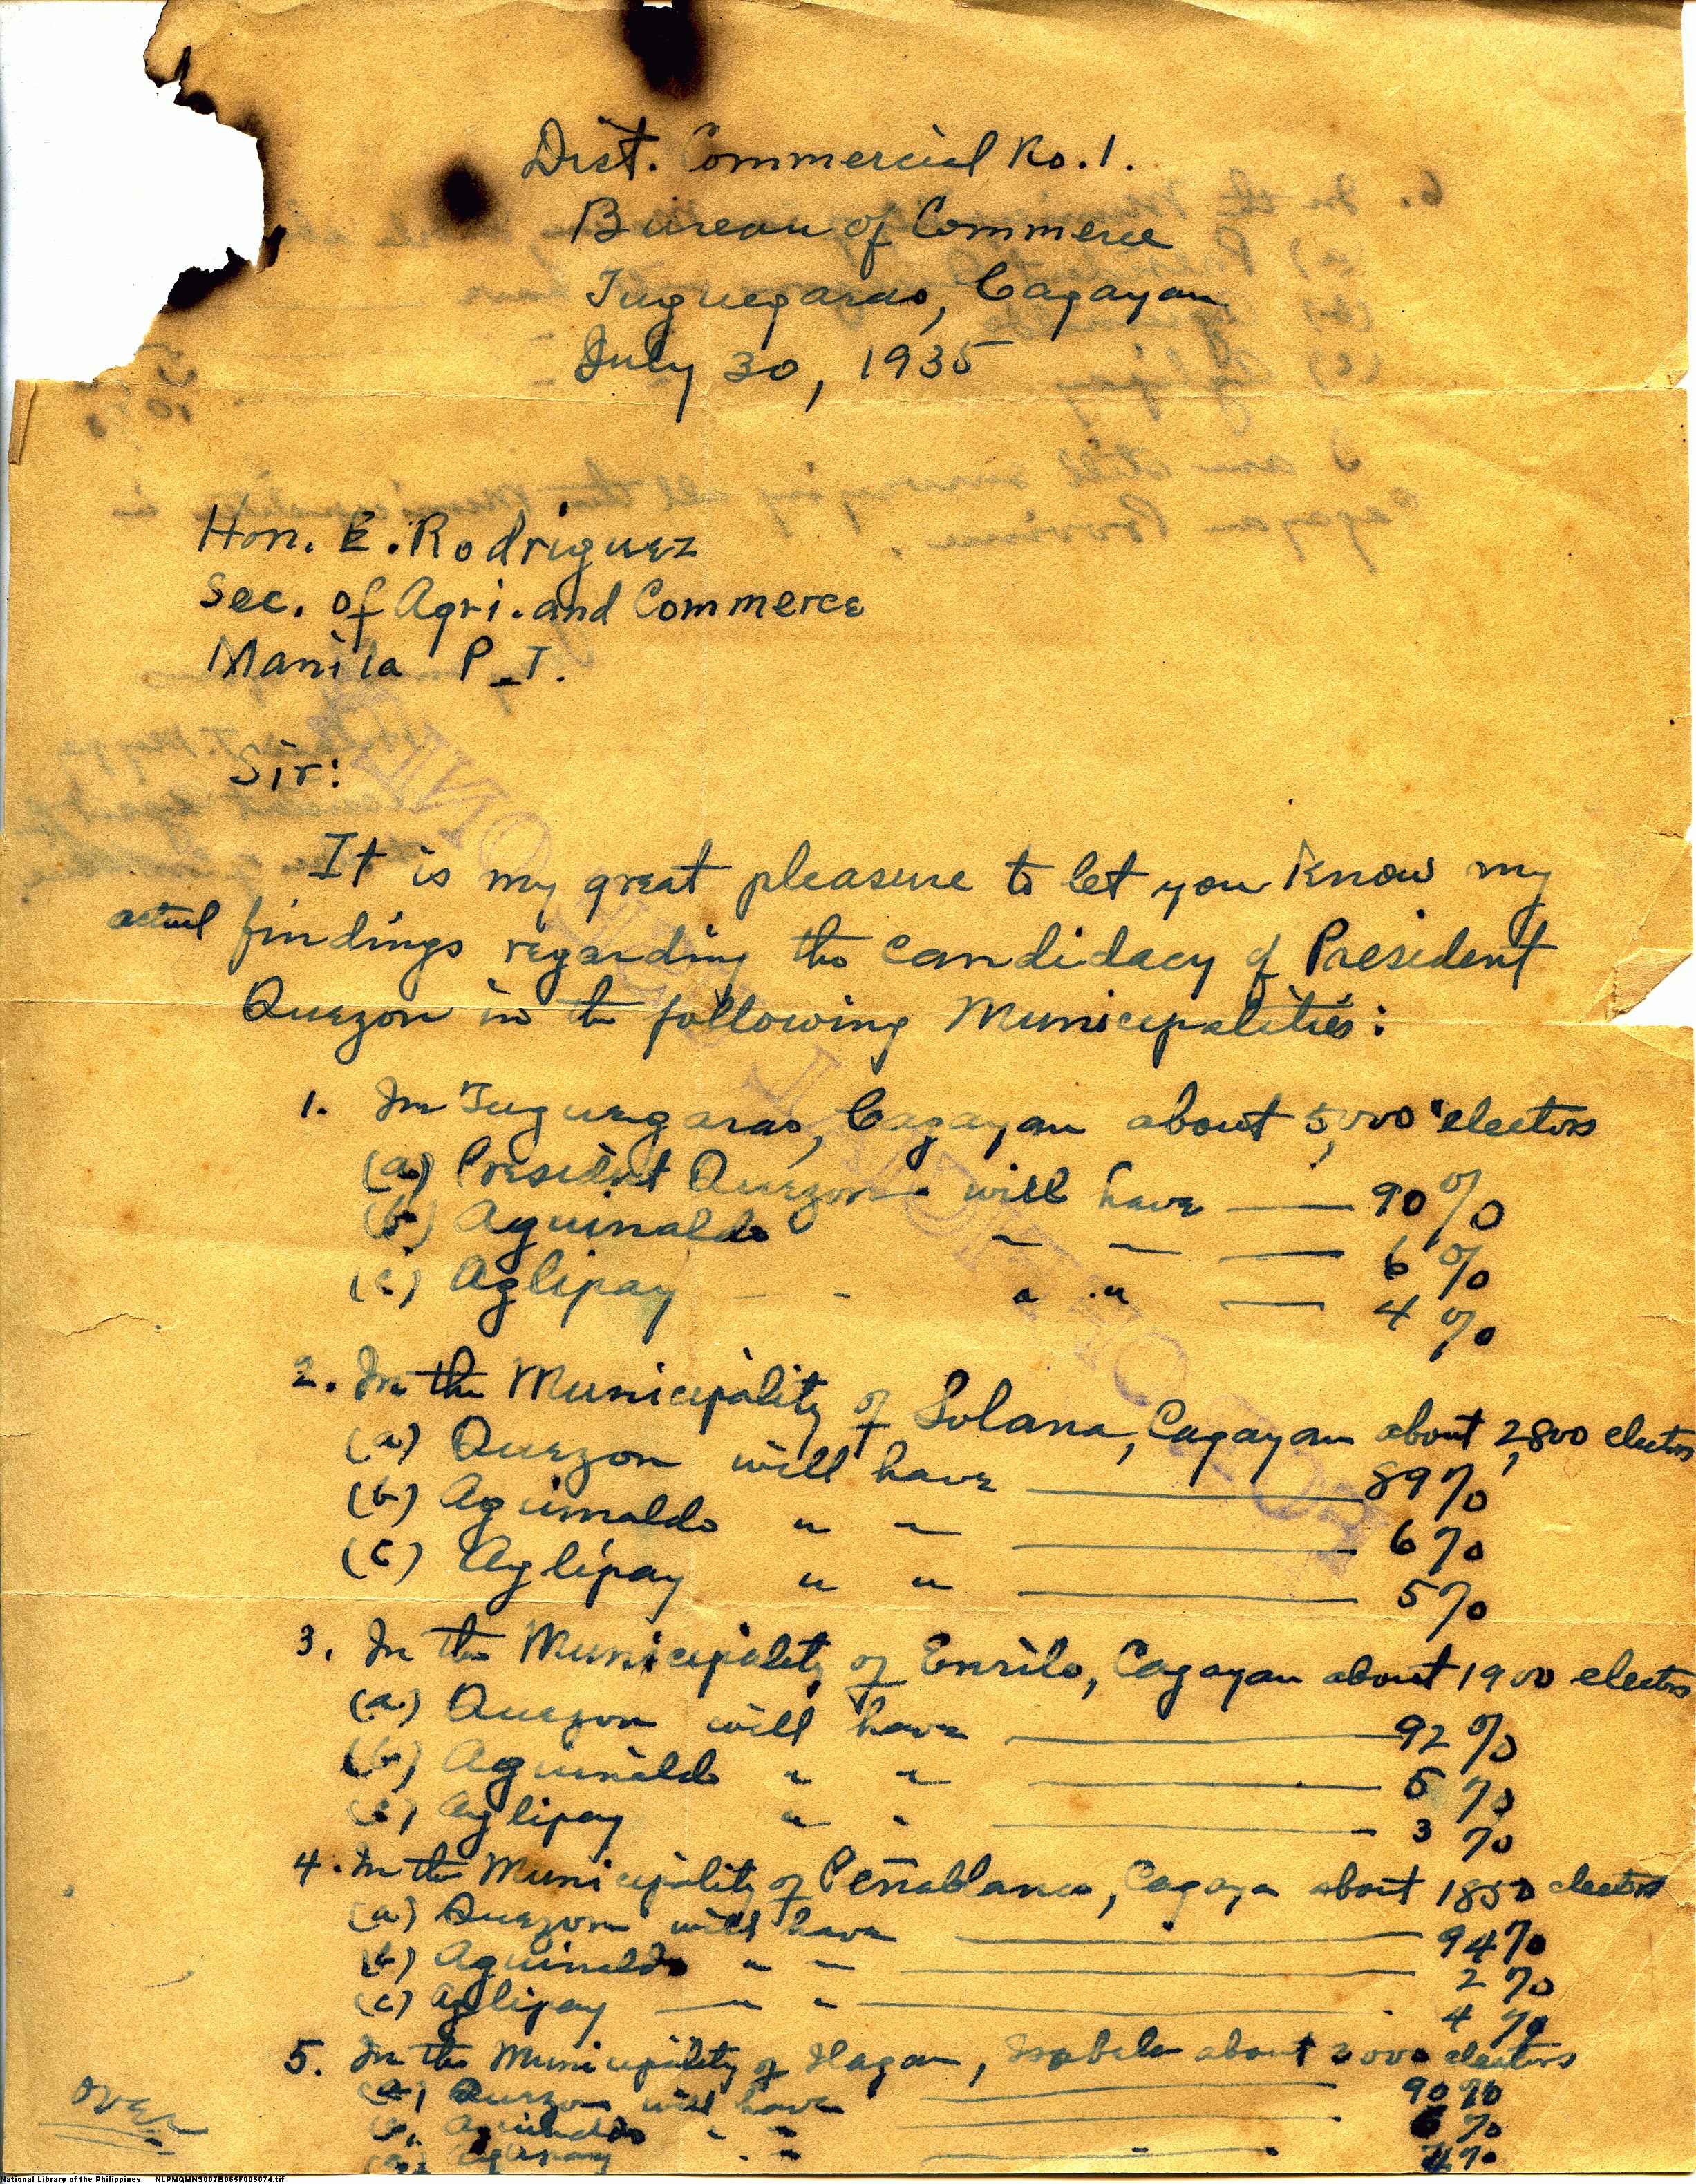 Dist. Commercial No. 1.
Bureau of Commerce
Tuguegarao, Cagayan
July 30, 1935
Hon. E. Rodriguez
Sec. of Agri. and Commerce
Manila P.I.
Sir:
It is my great pleasure to let you know my
actual findings regarding the candidacy of President
Quezon in the following Municipalities:
1. In Tuguegarao, Cagayan about 5,000 electors
(a) President Quezon will have — 90%
(b) Aguinaldo " " — 6%
(c) Aglipay - - " " — 4%
2. In the Municipality of Solana, Cagayan about 2,800 electors
(a) Quezon will have — 89%
(b) Aguinaldo " " — 6%
(c) Aglipay " " — 5%
3. In the Municipality of Enrile, Cagayan about 1900 electors
(a) Quezon will have — 92%
(b) Aguinaldo " " — 5%
(c) Aglipay " " — 3%
4. In the Municipality of Peñablanca, Cagayan about 1850 electors
(a) Quezon will have — 94%
(b) Aguinaldo " " — 2%
(c) Aglipay — " " — 4%
5. In the Municipality of Ilagan, Isabela about electors
(a) Quezon will have — 90%
Aguinaldo " " — 6%
Aglipay " " — 4%
over
National Library of the Philippines NLPMQMNS007B065F005074.tif